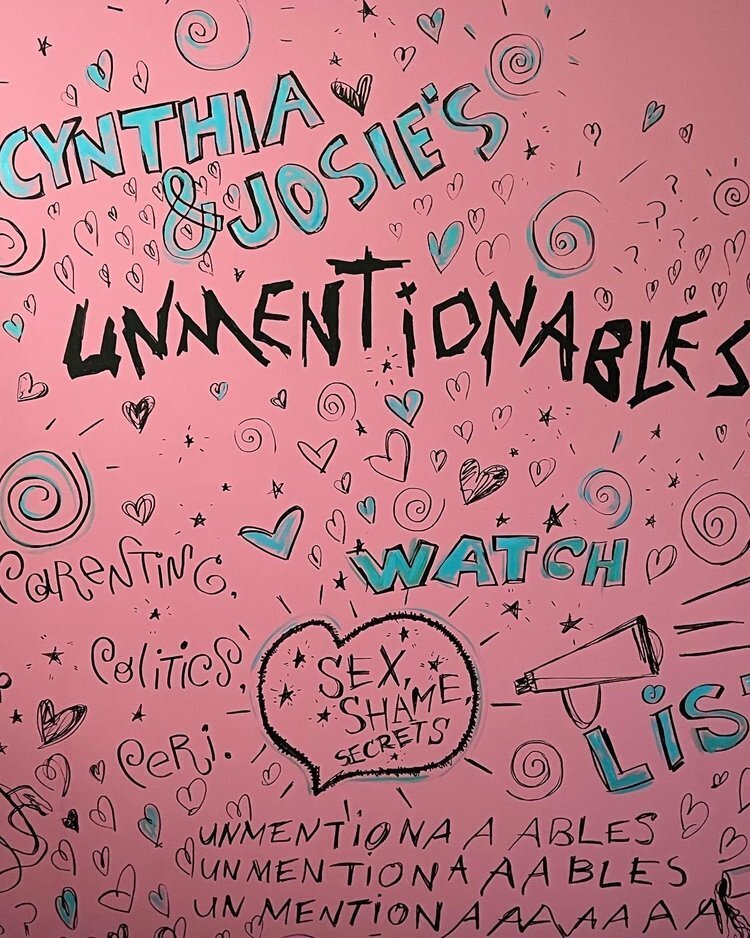 CYNTHIA
& JOSIE'S
UNMENTIONABLES
WATCH
PARENTING,
POLITICS,
PERI.
SEX,
SHAME,
SECRETS
LIS
UNMENTIONAAABLES
UNMENTIONAAABLES
UNMENTIONAAAAAAA